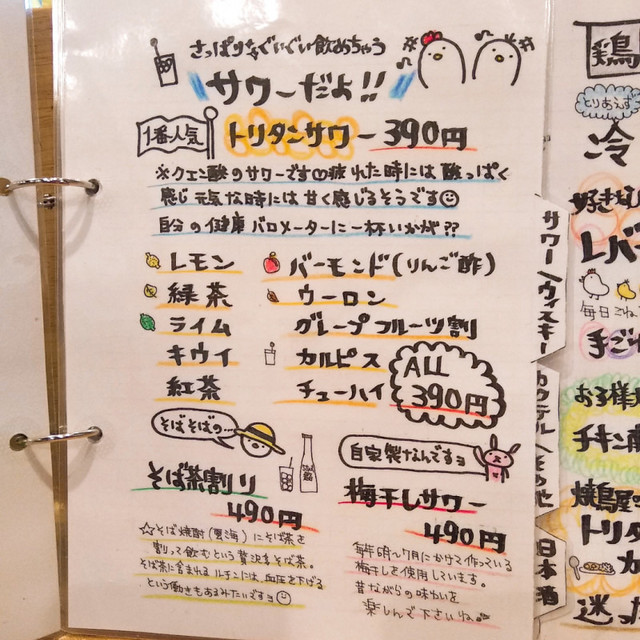 さっぱり
ぐいぐい飲めちゃう
サワーだよ!!
1番人気
トリタンサワー 390円
※クエン酸のサワーです♡疲れた時には酸っぱく
感じ元気な時には甘く感じるそうです☺
自分の健康バロメーターに一杯いかが??
レモン
緑茶
ライム
キウイ
紅茶
バーモンド(りんご酢)
ウーロン
グレープフルーツ割
カルピス
チューハイ
ALL
390円
そばそばの…
そば茶割り
490円
☆そば焼酎(雲海)にそば茶を
割って飲むという贅沢そば茶。
そば茶に含まれるルチンには、血圧を下げる
という働きもあるみたいです☺
自家製なんですョ
梅干しサワー
490円
毎年6月~7月にかけて作っている
梅干しを使用しています。
昔ながらの味わいを
楽しんで下さいね
サワー/ウィスキー
カクテル/その他
日本酒
鶏
とりあえず
冷
好きな
レバ
毎日
手ご
お子様
チキン
焼鳥屋
トリタ
カ
迷っ